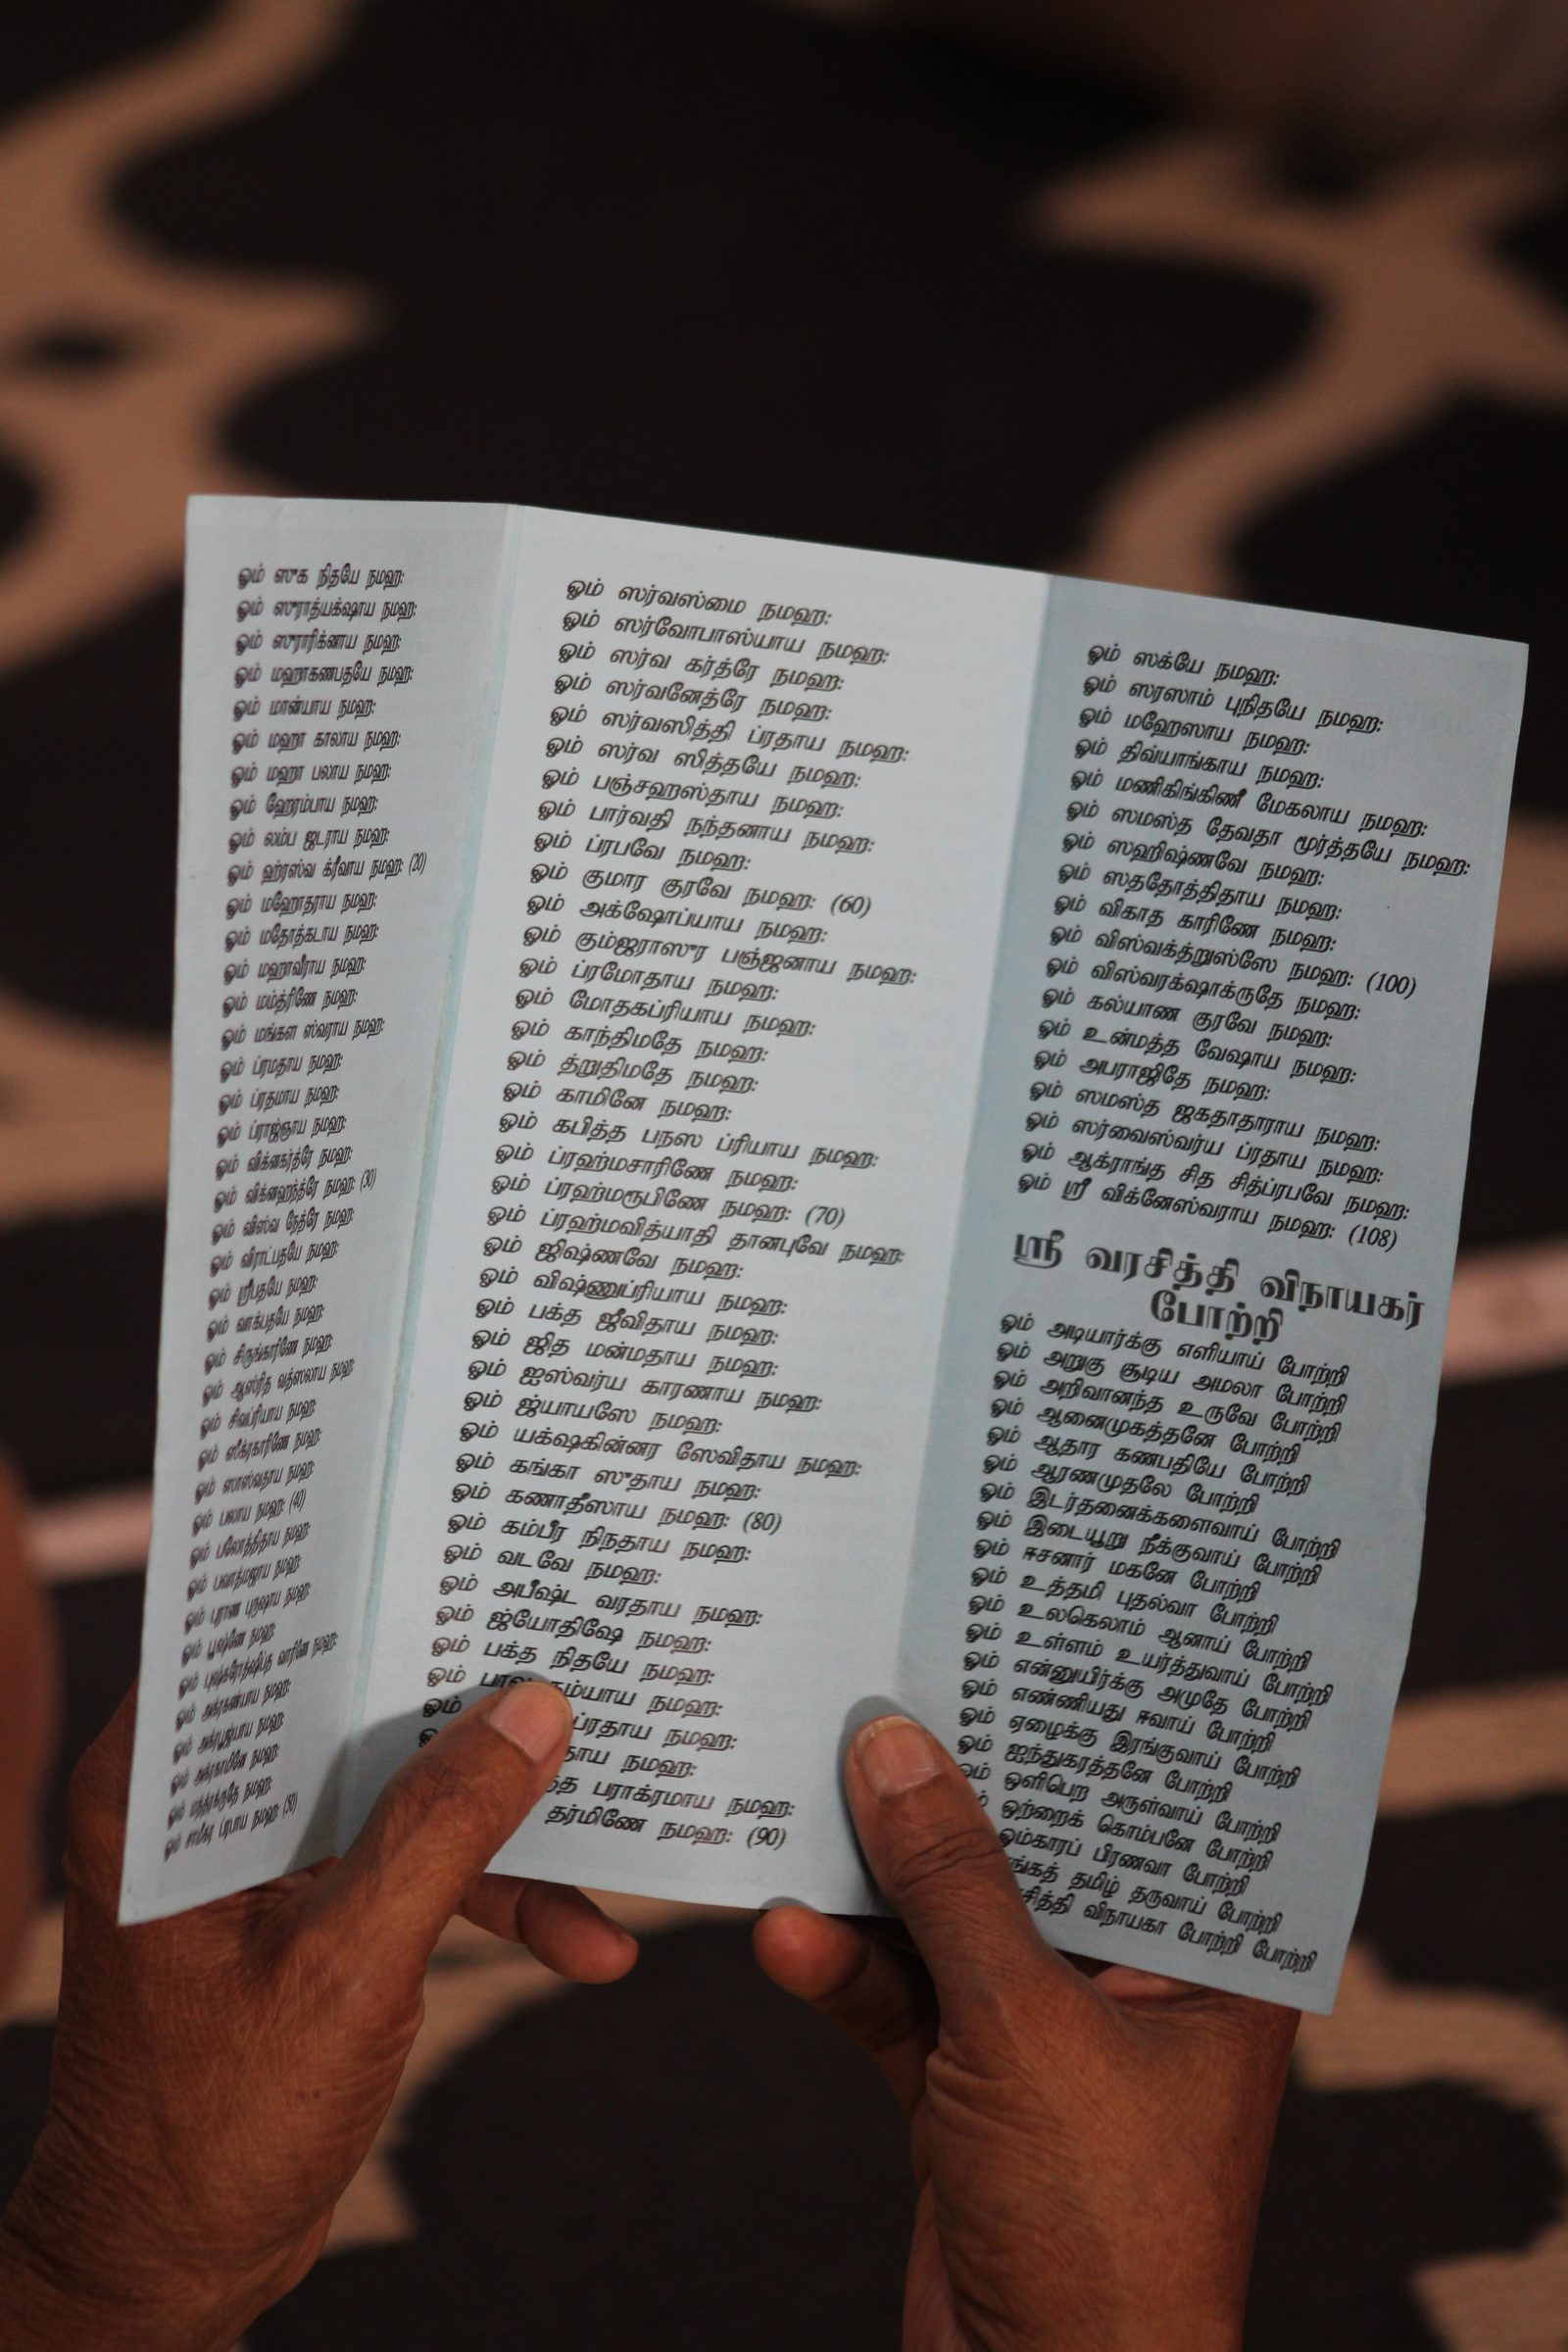 ஓம் ஸுக நிதயே நமஹ:
ஓம் ஸுராத்யக்ஷாய நமஹ:
ஓம் ஸுராரிக்னாய நமஹ:
ஓம் மஹாகணபதயே நமஹ:
ஓம் மான்யாய நமஹ:
ஓம் மஹா காலாய நமஹ:
ஓம் மஹா பலாய நமஹ:
ஓம் ஹேரம்பாய நமஹ:
ஓம் லம்ப ஜடராய நமஹ:
ஓம் ஹ்ரஸ்வ க்ரீவாய நமஹ: (20)
ஓம் மஹோதராய நமஹ:
ஓம் மதோத்கடாய நமஹ:
ஓம் மஹாவீராய நமஹ:
ஓம் மம்த்ரிணே நமஹ:
ஓம் மங்கள ஸ்வராய நமஹ:
ஓம் ப்ரமதாய நமஹ:
ஓம் ப்ரதமாய நமஹ:
ஓம் ப்ராஜ்ஞாய நமஹ:
ஓம் விக்னகர்த்ரே நமஹ:
ஓம் விக்னஹந்த்ரே நமஹ: (30)
ஓம் விஸ்வ நேத்ரே நமஹ:
ஓம் விராட்பதயே நமஹ:
ஓம் ஸ்ரீபதயே நமஹ:
ஓம் வாக்பதயே நமஹ:
ஓம் சிருங்காரிணே நமஹ:
ஓம் ஆஸ்ரித வத்ஸலாய நமஹ:
ஓம் சிவப்ரியாய நமஹ:
ஓம் ஸீக்ரகாரிணே நமஹ:
ஓம் ஸாஸ்வதாய நமஹ:
ஓம் பலாய நமஹ: (40)
ஓம் பலோத்திதாய நமஹ:
ஓம் பவாத்மஜாய நமஹ:
ஓம் புராண புருஷாய நமஹ:
ஓம் பூஷ்ணே நமஹ:
ஓம் புஷ்கரோத்ஷிப்த வாரிணே நமஹ:
ஓம் அக்ரகண்யாய நமஹ:
ஓம் அக்ரபூஜ்யாய நமஹ:
ஓம் அக்ரகாமினே நமஹ:
ஓம் மந்த்ரக்ருதே நமஹ:
ஓம் சாமீகர ப்ரபாய நமஹ: (50)
ஓம் ஸர்வஸ்மை நமஹ:
ஓம் ஸர்வோபாஸ்யாய நமஹ:
ஓம் ஸர்வ கர்த்ரே நமஹ:
ஓம் ஸர்வனேத்ரே நமஹ:
ஓம் ஸர்வஸித்தி ப்ரதாய நமஹ:
ஓம் ஸர்வ ஸித்தயே நமஹ:
ஓம் பஞ்சஹஸ்தாய நமஹ:
ஓம் பார்வதி நந்தனாய நமஹ:
ஓம் ப்ரபவே நமஹ:
ஓம் குமார குரவே நமஹ: (60)
ஓம் அக்ஷோப்யாய நமஹ:
ஓம் கும்ஜராஸுர பஞ்ஜனாய நமஹ:
ஓம் ப்ரமோதாய நமஹ:
ஓம் மோதகப்ரியாய நமஹ:
ஓம் காந்திமதே நமஹ:
ஓம் த்றுதிமதே நமஹ:
ஓம் காமினே நமஹ:
ஓம் கபித்த பநஸ ப்ரியாய நமஹ:
ஓம் ப்ரஹ்மசாரிணே நமஹ:
ஓம் ப்ரஹ்மரூபிணே நமஹ: (70)
ஓம் ப்ரஹ்மவித்யாதி தானபுவே நமஹ:
ஓம் ஜிஷ்ணவே நமஹ:
ஓம் விஷ்ணுப்ரியாய நமஹ:
ஓம் பக்த ஜீவிதாய நமஹ:
ஓம் ஜித மன்மதாய நமஹ:
ஓம் ஐஸ்வர்ய காரணாய நமஹ:
ஓம் ஜ்யாயஸே நமஹ:
ஓம் யக்ஷகின்னர ஸேவிதாய நமஹ:
ஓம் கங்கா ஸுதாய நமஹ:
ஓம் கணாதீஸாய நமஹ: (80)
ஓம் கம்பீர நிநதாய நமஹ:
ஓம் வடவே நமஹ:
ஓம் அபீஷ்ட வரதாய நமஹ:
ஓம் ஜ்யோதிஷே நமஹ:
ஓம் பக்த நிதயே நமஹ:
ஓம் நமஹ:
ஓம் ப்ரதாய நமஹ:
நமஹ:
பராக்ரமாய நமஹ:
தர்மிணே நமஹ: (90)
ஓம் ஸக்யே நமஹ:
ஓம் ஸரஸாம் புநிதயே நமஹ:
ஓம் மஹேஸாய நமஹ:
ஓம் திவ்யாங்காய நமஹ:
ஓம் மணிகிங்கிணீ மேகலாய நமஹ:
ஓம் ஸமஸ்த தேவதா மூர்த்தயே நமஹ:
ஓம் ஸஹிஷ்ணவே நமஹ:
ஓம் ஸததோத்திதாய நமஹ:
ஓம் விகாத காரிணே நமஹ:
ஓம் விஸ்வக்த்றுஸ்ஸே நமஹ: (100)
ஓம் விஸ்வரக்ஷாக்ருதே நமஹ:
ஓம் கல்யாண குரவே நமஹ:
ஓம் உன்மத்த வேஷாய நமஹ:
ஓம் அபராஜிதே நமஹ:
ஓம் ஸமஸ்த ஜகதாதாராய நமஹ:
ஓம் ஸர்வைஸ்வர்ய ப்ரதாய நமஹ:
ஓம் ஆக்ராங்த சித சித்ப்ரபவே நமஹ:
ஓம் ஸ்ரீ விக்னேஸ்வராய நமஹ: (108)
ஸ்ரீ வரசித்தி விநாயகர்
போற்றி
ஓம் அடியார்க்கு எளியாய் போற்றி
ஓம் அறுகு சூடிய அமலா போற்றி
ஓம் அறிவானந்த உருவே போற்றி
ஓம் ஆனைமுகத்தனே போற்றி
ஓம் ஆதார கணபதியே போற்றி
ஓம் ஆரணமுதலே போற்றி
ஓம் இடர்தனைக்களைவாய் போற்றி
ஓம் இடையூறு நீக்குவாய் போற்றி
ஓம் ஈசனார் மகனே போற்றி
ஓம் உத்தமி புதல்வா போற்றி
ஓம் உலகெலாம் ஆனாய் போற்றி
ஓம் உள்ளம் உயர்த்துவாய் போற்றி
ஓம் என்னுயிர்க்கு அமுதே போற்றி
ஓம் எண்ணியது ஈவாய் போற்றி
ஓம் ஏழைக்கு இரங்குவாய் போற்றி
ஓம் ஐந்துகரத்தனே போற்றி
ஓம் ஒளிபெற அருள்வாய் போற்றி
ஒற்றைக் கொம்பனே போற்றி
ஓம்காரப் பிரணவா போற்றி
தமிழ் தருவாய் போற்றி
விநாயகா போற்றி போற்றி